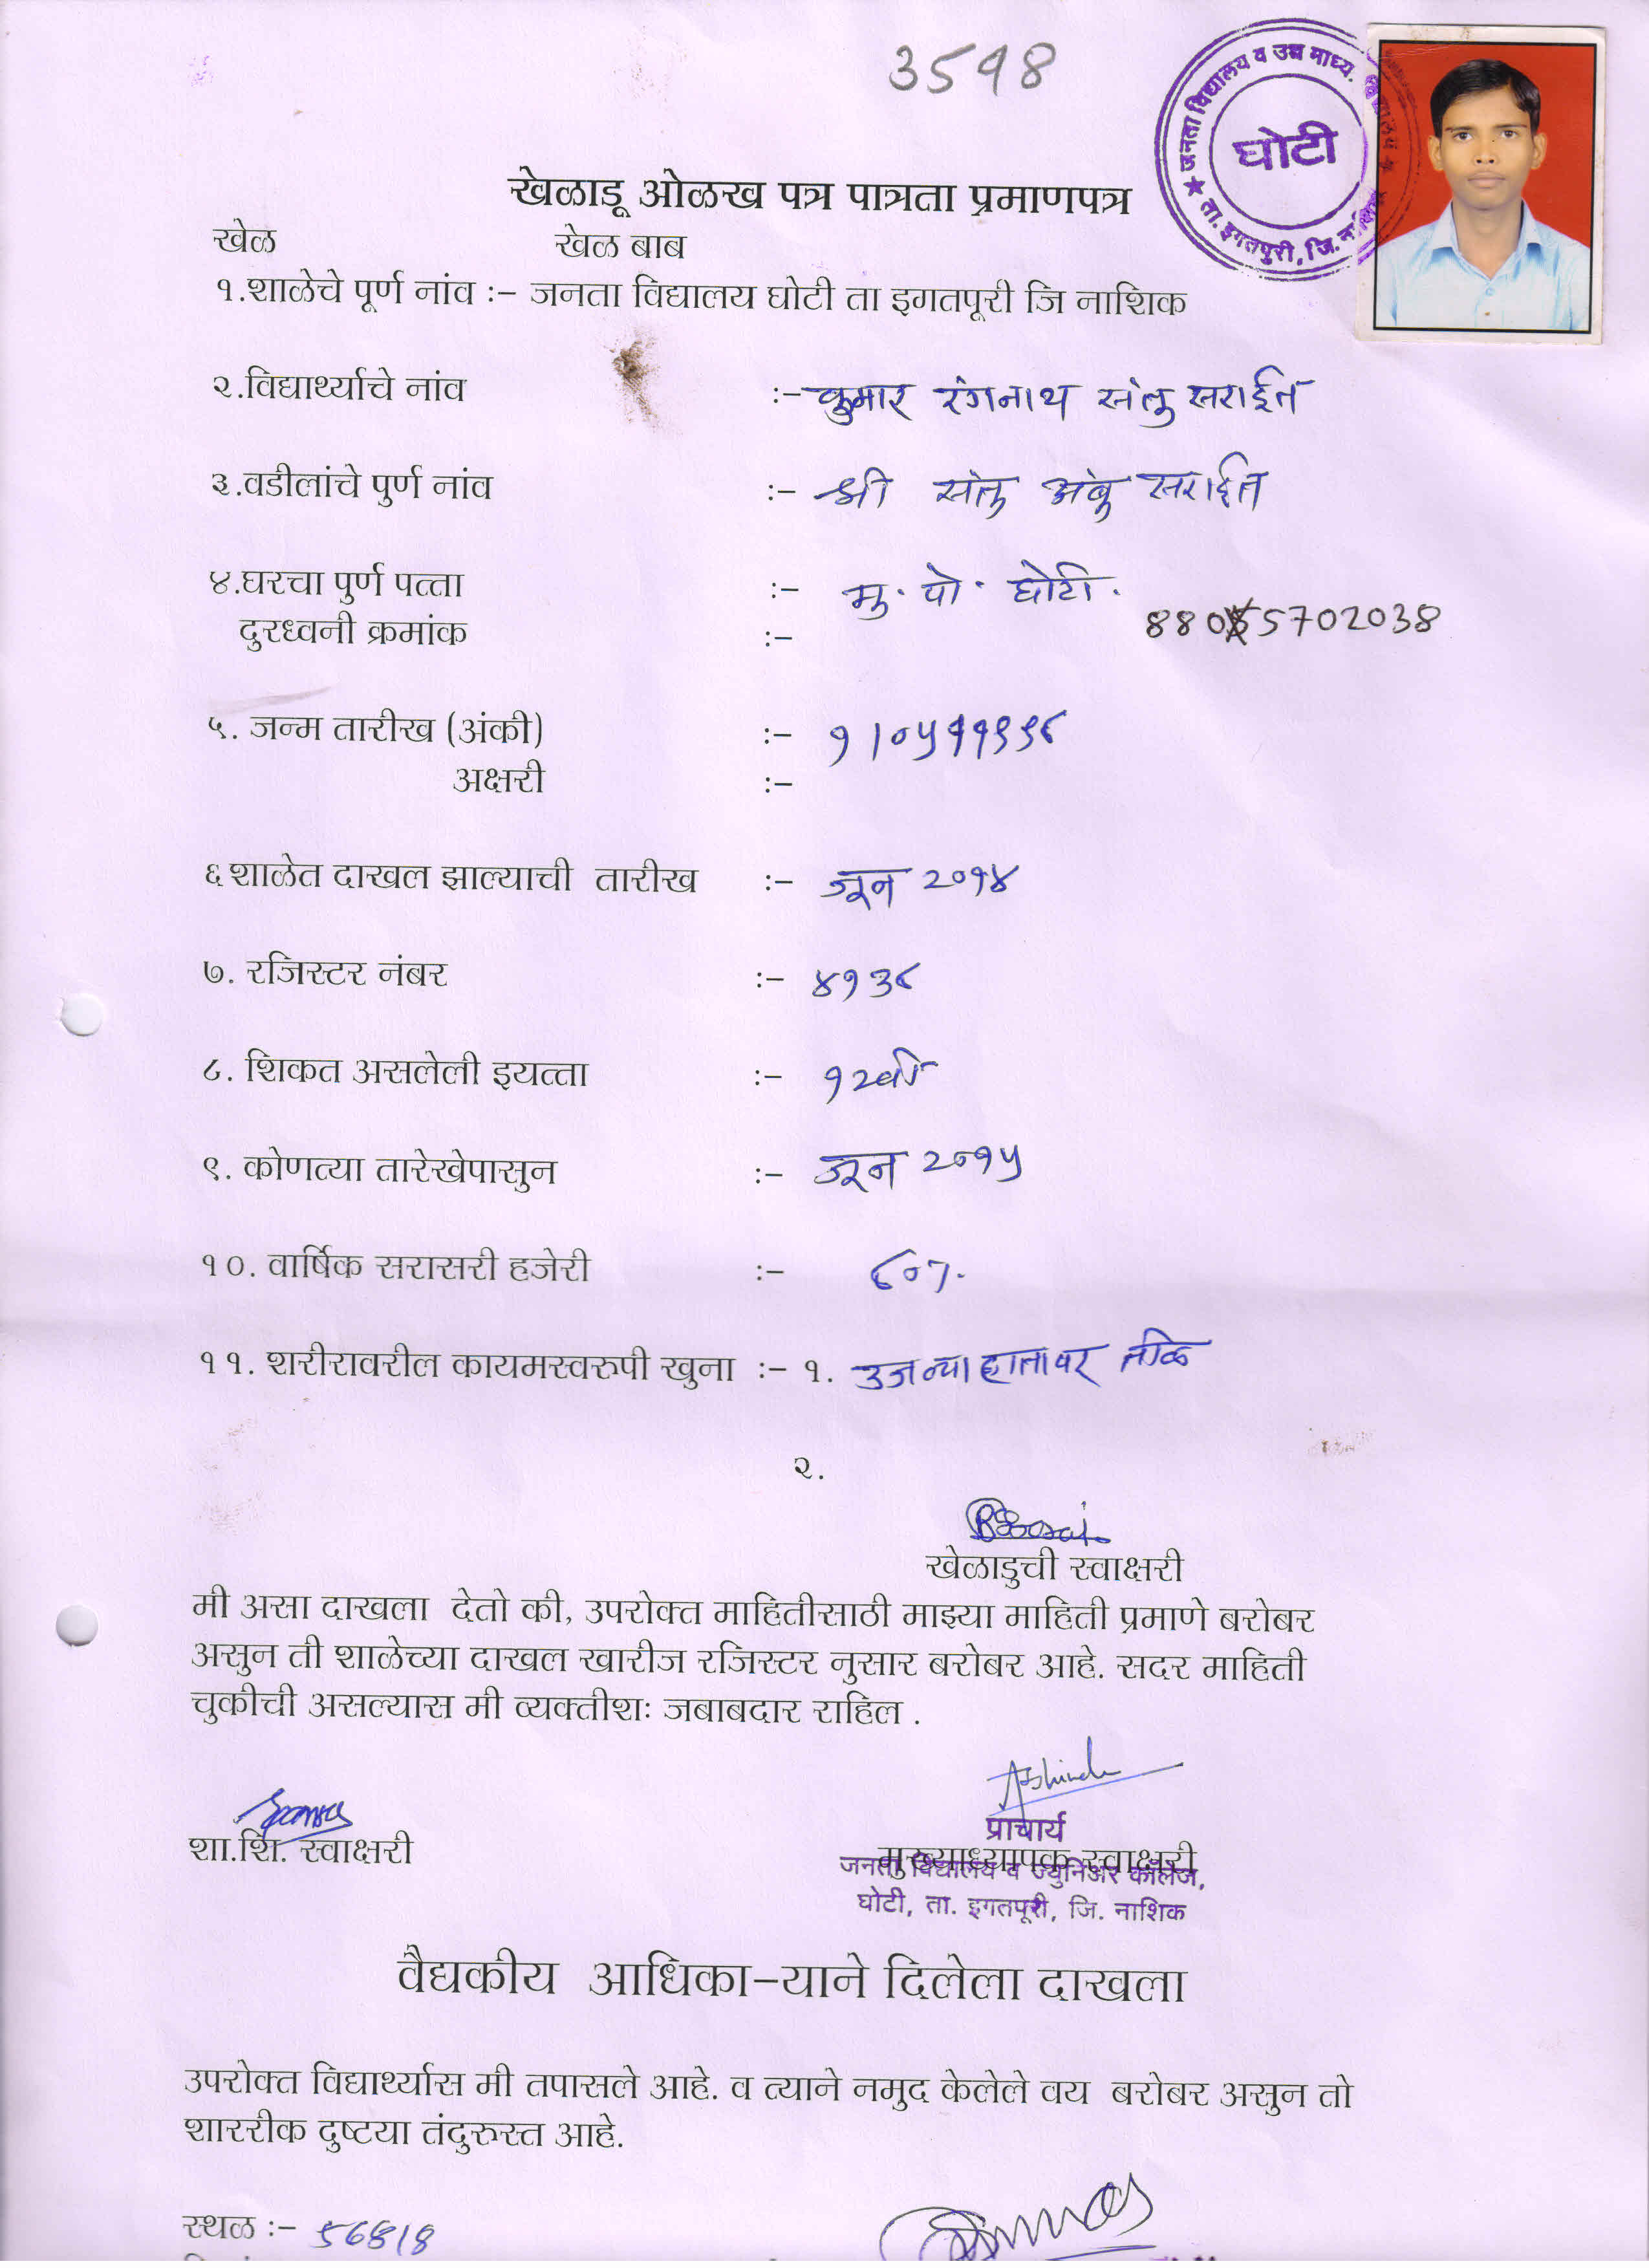 3598
जनता विद्यालय व उच्च माध्य.
घोटी
ता. इगतपुरी, जि.
खेळाडू ओळख पत्र पात्रता प्रमाणपत्र
खेळ खेळ बाब
१.शाळेचे पूर्ण नांव :- जनता विद्यालय घोटी ता इगतपूरी जि नाशिक
२.विद्यार्थ्याचे नांव :- कुमार रंगनाथ संतु सराईत
३.वडीलांचे पुर्ण नांव :- श्री संतु अंबु सराईत
४.घरचा पुर्ण पत्ता :- मु. पो. घोटी.
दुरध्वनी क्रमांक :- 8805702038
५. जन्म तारीख (अंकी) :-
अक्षरी :-
६ शाळेत दाखल झाल्याची तारीख :- जून २०१४
७. रजिस्टर नंबर :- ४१३८
८. शिकत असलेली इयत्ता :- १२वी
९. कोणत्या तारेखेपासुन :- जून २०१५
१०. वार्षिक सरासरी हजेरी :- ८०%
११. शरीरावरील कायमस्वरुपी खुना :- १. उजव्या हातावर तीळ
२.
खेळाडुची स्वाक्षरी
मी असा दाखला देतो की, उपरोक्त माहितीसाठी माझ्या माहिती प्रमाणे बरोबर
असुन ती शाळेच्या दाखल खारीज रजिस्टर नुसार बरोबर आहे. सदर माहिती
चुकीची असल्यास मी व्यक्तीशः जबाबदार राहिल .
प्राचार्य
शा.शि. स्वाक्षरी मुख्याध्यापक स्वाक्षरी
जनता विद्यालय व ज्युनिअर कॉलेज,
घोटी, ता. इगतपूरी, जि. नाशिक
वैद्यकीय आधिका-याने दिलेला दाखला
उपरोक्त विद्यार्थ्यास मी तपासले आहे. व त्याने नमुद केलेले वय बरोबर असुन तो
शाररीक दुष्टया तंदुरुस्त आहे.
स्थळ :-